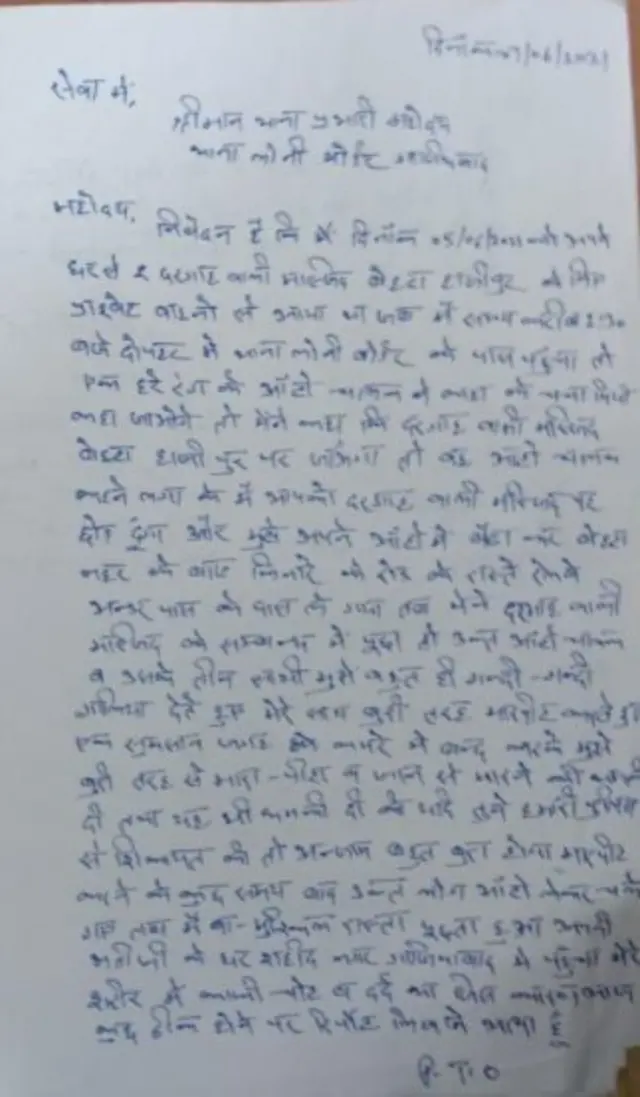 दिनांक 07/06/2021
सेवा में,
श्रीमान थाना प्रभारी महोदय
थाना लोनी बोर्डर गाजियाबाद
महोदय,
निवेदन है कि मैं दिनाँक 05/06/2021 को अपने
घर से दरगाह वाली मस्जिद बेहटा हाजीपुर के लिए
प्राइवेट वाहनो से आया था जब मैं समय करीब 3:30
बजे दोपहर में थाना लोनी बोर्डर के पास पहुंचा तो
एक हरे रंग के ऑटो चालक ने कहा के चचा मियां
कहा जाओगे तो मैंने कहा कि दरगाह वाली मस्जिद
बेहटा हाजी पुर पर जाऊंगा तो वह ऑटो चालक
कहने लगा के मैं आपको दरगाह वाली मस्जिद पर
छोड दूंगा और मुझे अपने ऑटो में बैठा कर बेहटा
नहर के बाए किनारे के रोड के रास्ते रेलवे
अन्डर पास के पास ले गया तब मैंने दरगाह वाली
मस्जिद के सम्बन्ध में पूछा तो उक्त ऑटो चालक
व उसके तीन साथी मुझे बहुत ही गन्दी-गन्दी
गालिया देते हुए मेरे साथ बुरी तरह मारपीट करते हुए
एक सुनसान जगह के कमरे में बन्द करके मुझे
बुरी तरह से मारा-पीटा व जान से मारने की धमकी
दी तथा यह भी धमकी दी के यदि तूने हमारी पुलिस
से शिकायत की तो अन्जाम बहुत बुरा होगा मारपीट
करने के कुछ समय बाद उक्त लोग ऑटो लेकर चले
गए तब मैं बा-मुश्किल रास्ता पूछता हुआ अपनी
भतीजी के घर शहीद नगर गाजियाबाद में पहुंचा मेरे
शरीर में काफी चोट व दर्द था आज
कुछ ठीक होने पर रिपोर्ट लिखाने आया हूँ
P.T.O